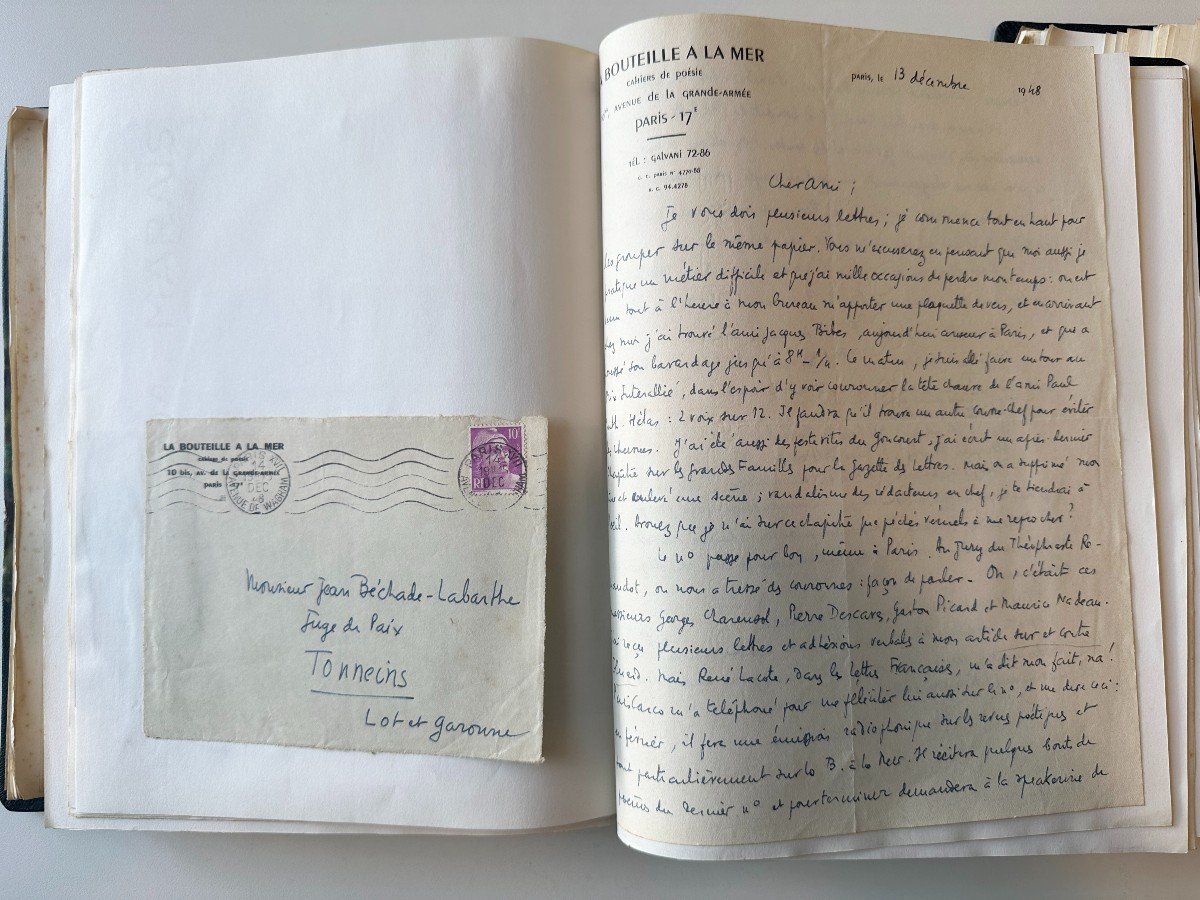 LA BOUTEILLE A LA MER
cahiers de poésie
10 bis, av. de la GRANDE-ARMÉE
PARIS 17e
14
DEC
48
AVENUE DE WAGRAM
10F
DEC
RF
Monsieur Jean Béchade-Labarthe
Juge de Paix
Tonneins
Lot et Garonne
LA BOUTEILLE A LA MER
cahiers de poésie
AVENUE DE LA GRANDE-ARMÉE
PARIS - 17E
TÉL. : GALVANI 72-86
C. C. PARIS No 4770-88
R. C. 94.4278
PARIS, LE 13 décembre 1948
Cher Ami ;
Je vous dois plusieurs lettres ; je commence tout en haut pour
les grouper sur le même papier. Vous m'excuserez en pensant que moi aussi je
pratique un métier difficile et que j'ai mille occasions de perdre mon temps : on est
venu tout à l'heure à mon bureau m'apporter une plaquette de vers, et en arrivant
chez moi j'ai trouvé l'ami Jacques Bibes, aujourd'hui à Paris, et qui a
poussé son bavardage jusqu'à 8H - 1/4. Ce matin, je suis allé faire un tour au
Prix Interallié, dans l'espoir d'y voir couronner la tête chauve de l'ami Paul
Hélas : 2 voix sur 12. Il faudra qu'il trouve un autre couvre-chef pour éviter
les rhumes. J'ai été aussi des festivités du Goncourt ; j'ai écrit un après-dernier
chapitre sur les Grandes Familles pour la Gazette des lettres. Mais on a supprimé mon
et enlevé une scène ; vandalisme des rédacteurs en chef, je te tiendrai à
Avouez que je n'ai sur ce chapitre que péchés véniels à me reprocher ?
Le no passe pour bon, même à Paris. Au Jury du Théophraste Re-
naudot, on nous a tressé des couronnes : façon de parler - On, c'était ces
messieurs Georges Charensol, Pierre Descaves, Gaston Picard et Maurice Nadeau.
J'ai reçu plusieurs lettres et adhésions verbales à mon article sur et contre
Mais René Lacote, dans les lettres Françaises, m'a dit mon fait, na !
m'a téléphoné pour me féliciter lui aussi sur le no, et me dire ceci :
en février, il fera une émission radiophonique sur les revues poétiques et
tout particulièrement sur la B. à la Mer. Il récitera quelques bouts de
poèmes du dernier no et pour terminer demandera à la speakerine de